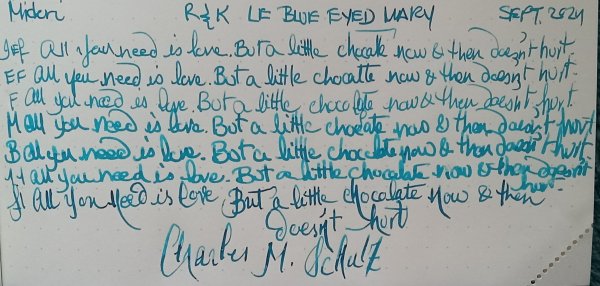 Midori R&K LE BLUE EYED MARY SEPT. 2024
JEF All you need is love. But a little chocolate now & then doesn't hurt.
EF All you need is love. But a little chocolatte now & then doesn't hurt.
F All you need is love. But a little chocolate now & then doesn't hurt.
M All you need is love. But a little chocolate now & then doesn't hurt
B All you need is love. But a little chocolate now & then doesn't hurt
1.1 all you need is love. But a little chocolate now & then doesn't
hurt.
Fl All you need is love But a little chocolate now & then
doesn't hurt
Charles M. Schulz